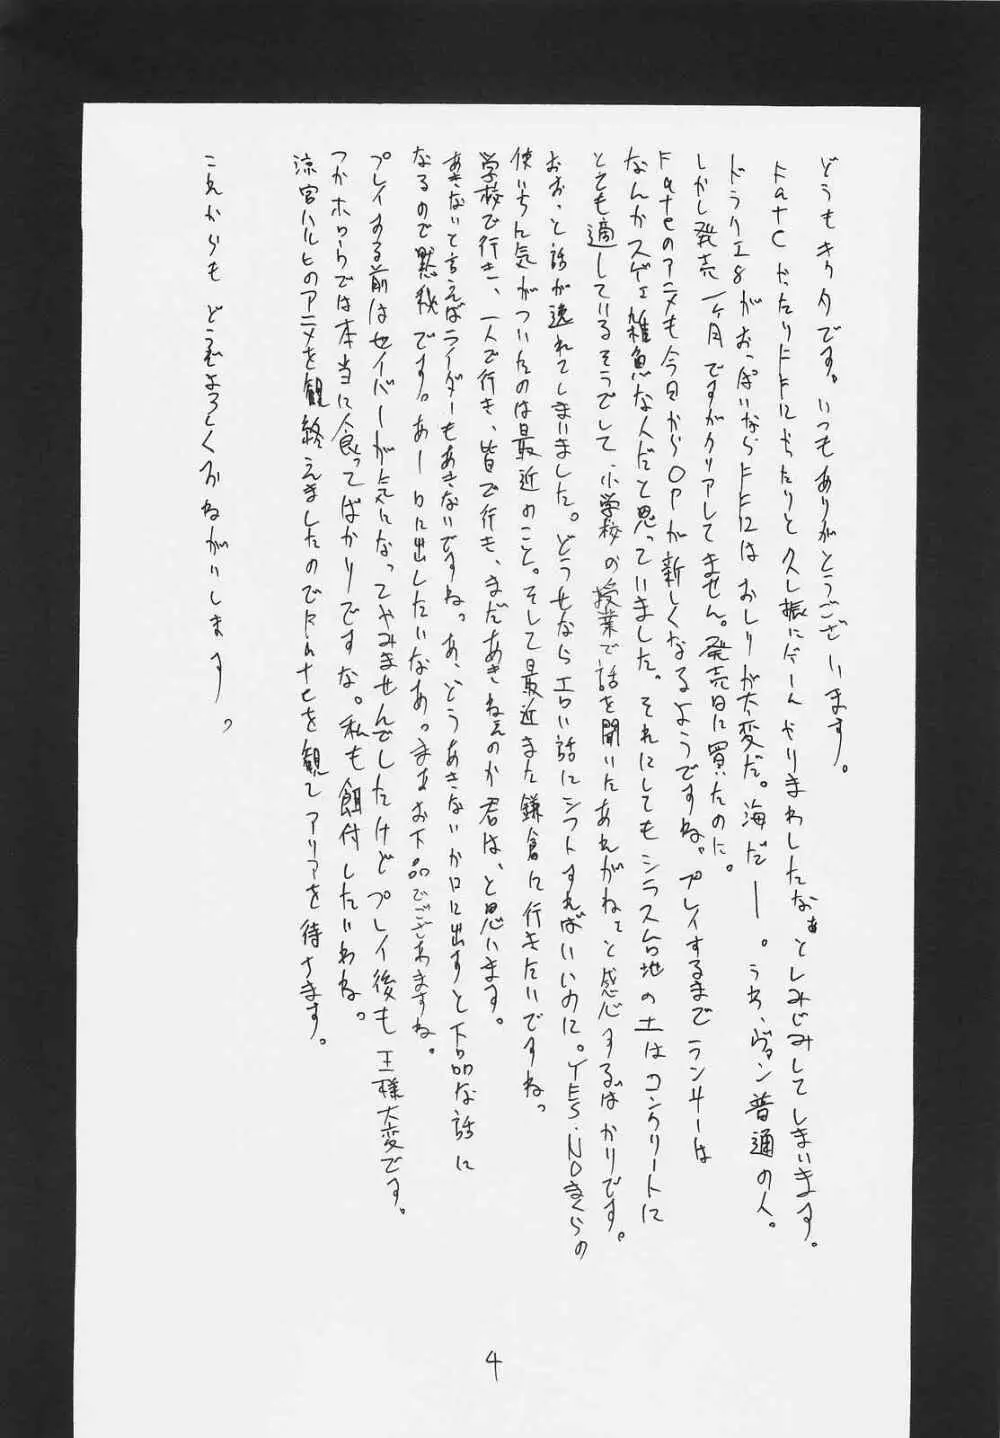 どうもキクタです。いつもありがとうございます。
Fateだったりドラ12だったりと久し振にゲームやりまわしたなぁとしみじみしてしまいます。
ドラクエ8がおっぱいならFF12はおしりが大変だ。海だー。うち、ヴァン普通の人。
しかし発売一ヶ月ですがクリアしてません。発売日に買ったのに。
Fateのアニメも今日からOPが新しくなるようですね。プレイするまでランサーは
なんかスゲェ雑魚な人だと思っていました。それにしてもシラス台地の土はコンクリートに
とても適しているそうでして、小学校の授業で話を聞いたあれがねぇと感心するばかりです。
おおっと話が逸れてしまいました。どうせならエロい話にシフトすればいいのに。YES・NOまくらの
使いみちに気がついたのは最近のこと。そして最近また鎌倉に行きたいですねっ
学校で行き、一人で行き、皆で行き、まだあきねぇのか君は、と思います。
あきないと言えばライダーもあきないですねっ あ、どうあきないか口に出すと下品な話に
なるので黙秘です。あー口に出したいなあっ まぁお下品でございますね。
プレイする前はセイバーが気になってやみませんでしたけどプレイ後も王様大変です。
つかホロウでは本当に食ってばかりですな。私も餌付したいわね。
涼宮ハルヒのアニメを観終えましたのでFateを観てアリアを待ちます。
これからもどうぞよろしくおねがいします。
4